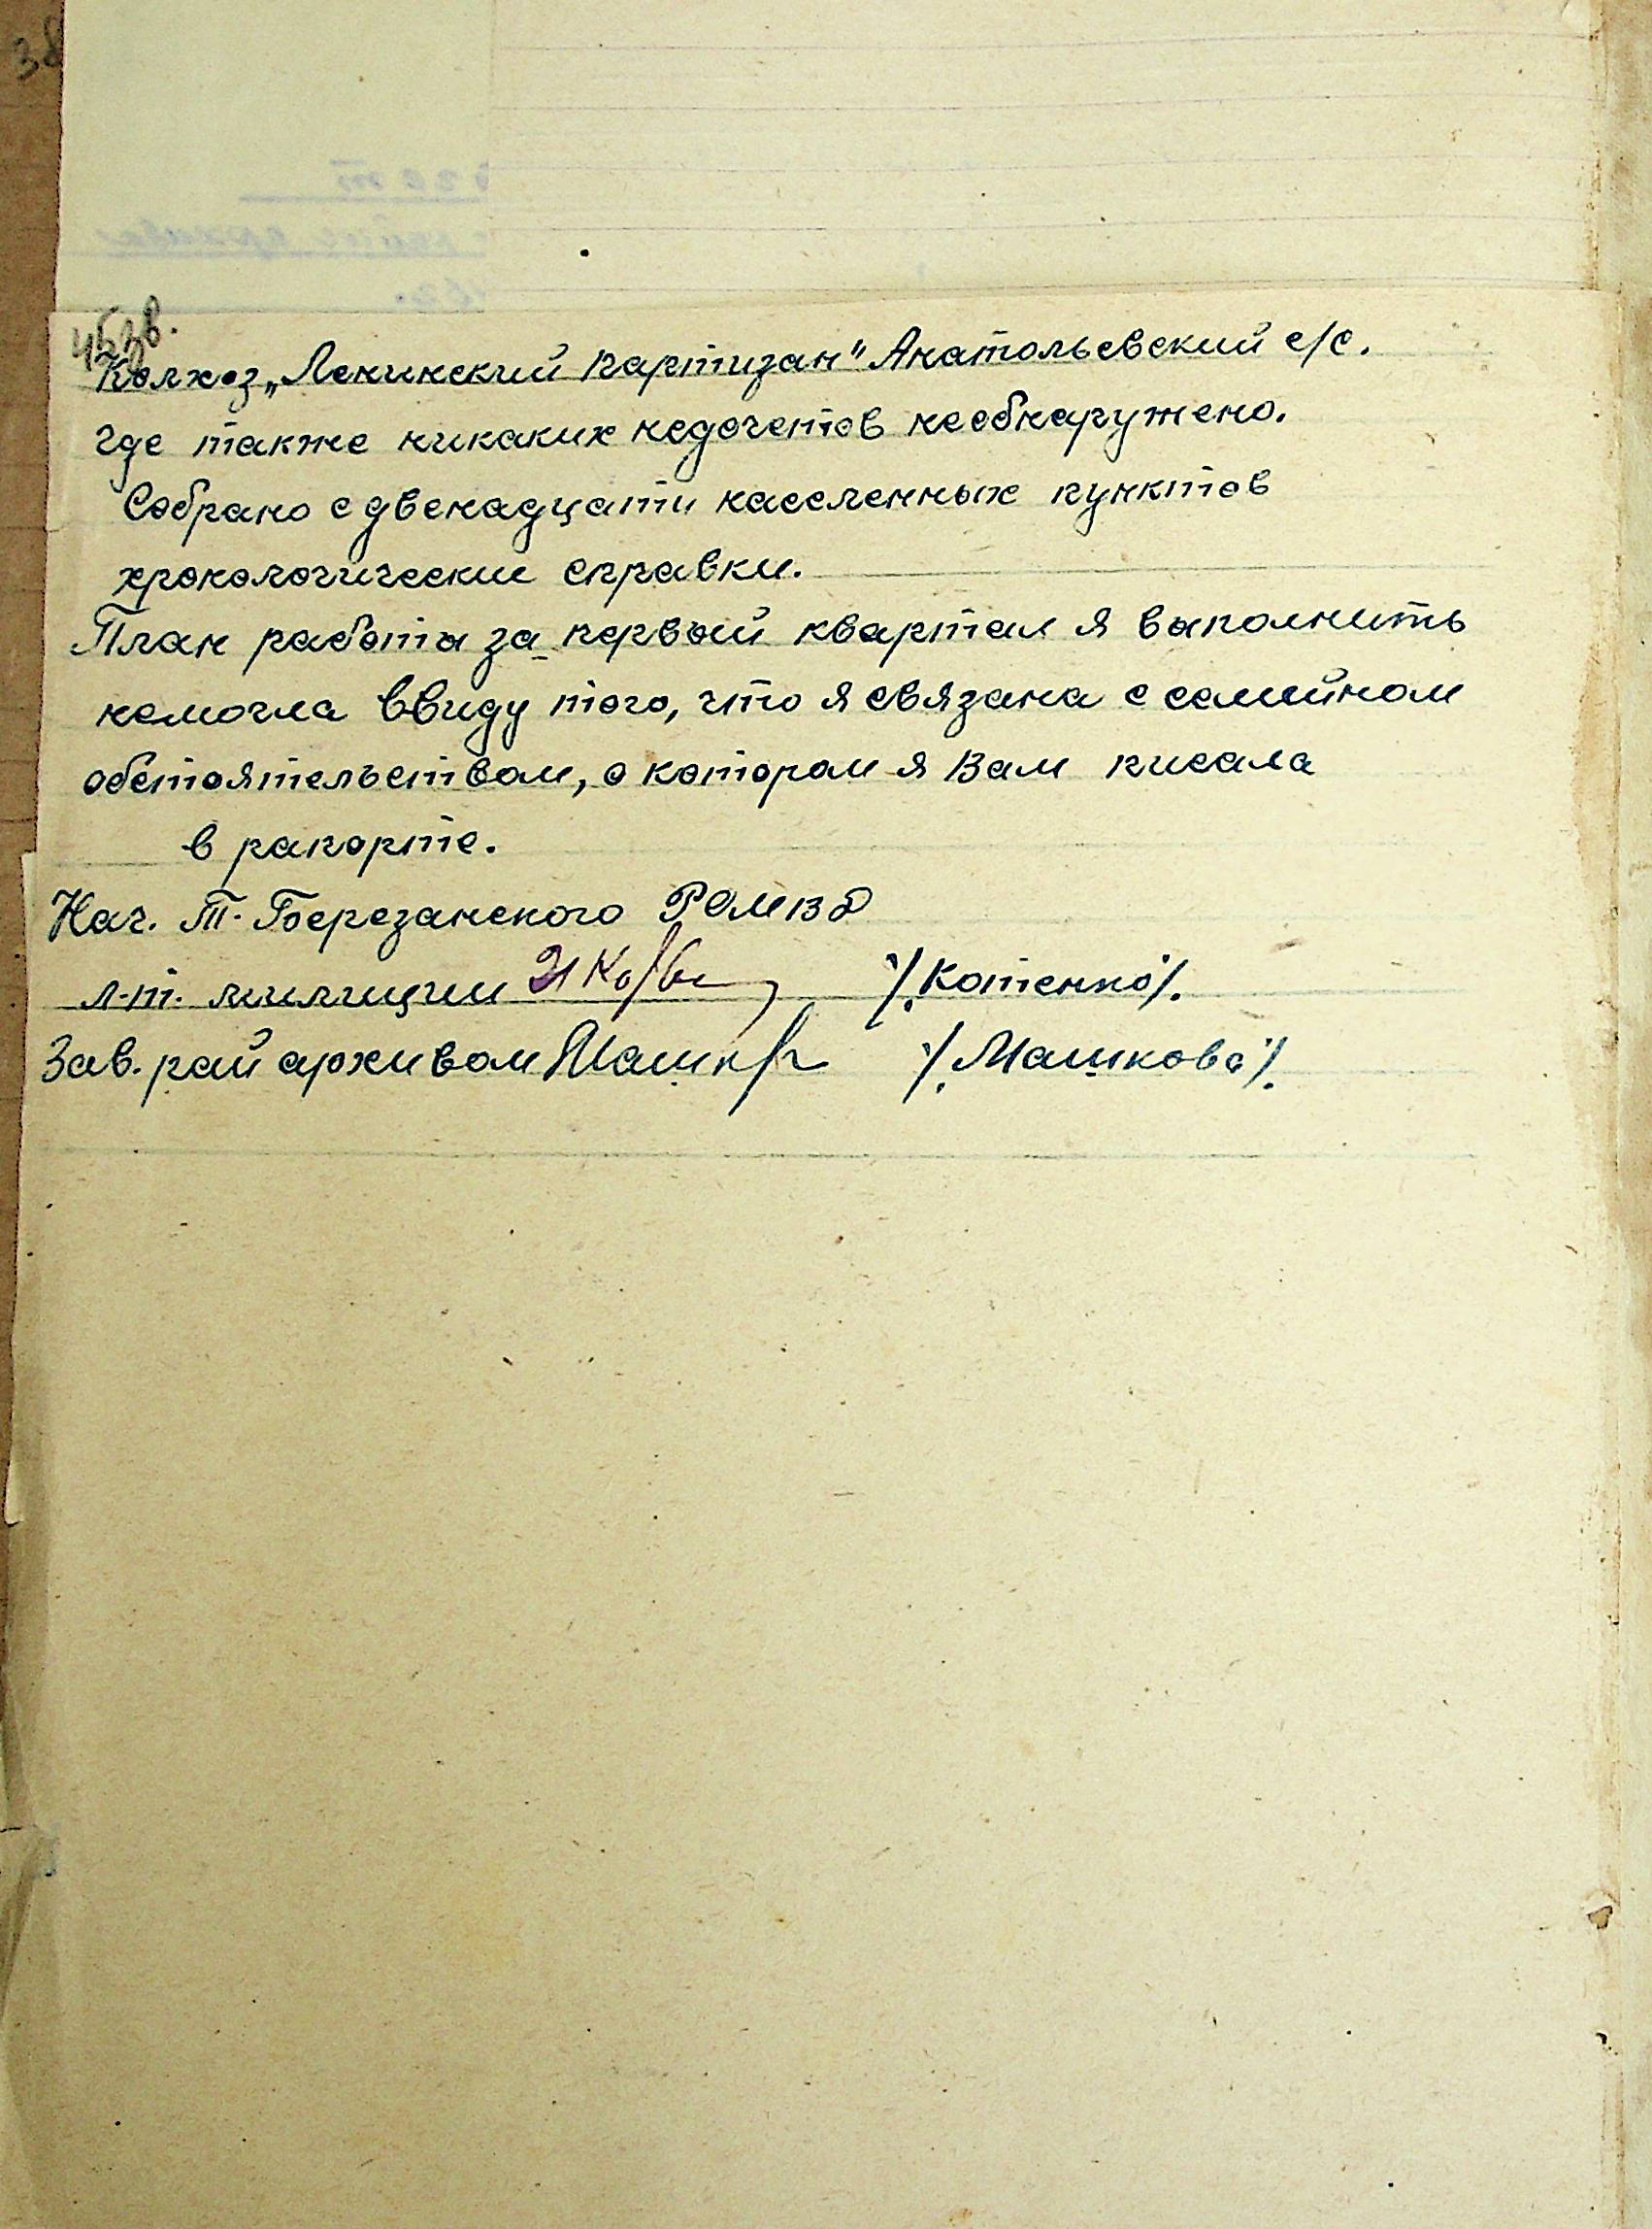 45зв.
Колхоз „Ленинский партизан" Анатольевский с/с.
где также никаких недочетов необнаружено.
Собрано с двенадцати населенных пунктов
хронологические справки.
План работы за первый квартал я выполнить
немогла ввиду того, что я связана с семейном
обстоятельством, о котором я Вам писала
в рапорте.
Нач. Т. Березанского РОМВД
л-т. милиции /.Котенко/.
Зав. рай архивом /.Машкова/.